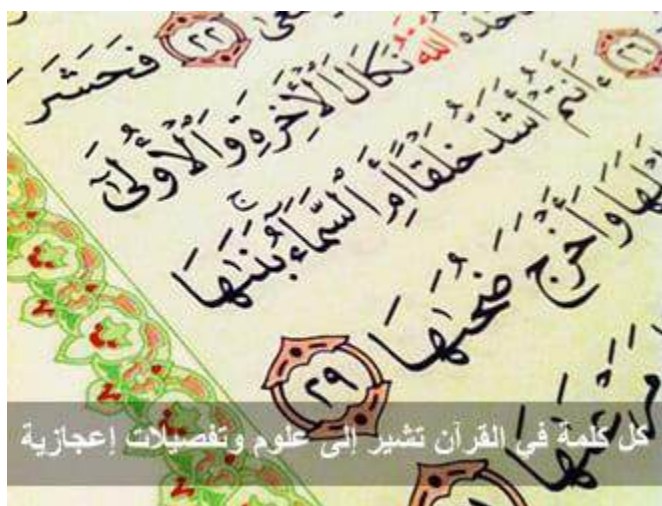 ٢٢ فَحَشَرَ
ٱللَّهُ نَكَالَ ٱلْأَخِرَةِ وَٱلْأُولَىٰٓ
٢٦ ءَأَنتُمْ أَشَدُّ خَلْقًا أَمِ ٱلسَّمَآءُ ۚ بَنَىٰهَا
وَأَخْرَجَ ضُحَىٰهَا ٢٩
كل كلمة في القرآن تشير إلى علوم وتفصيلات إعجازية